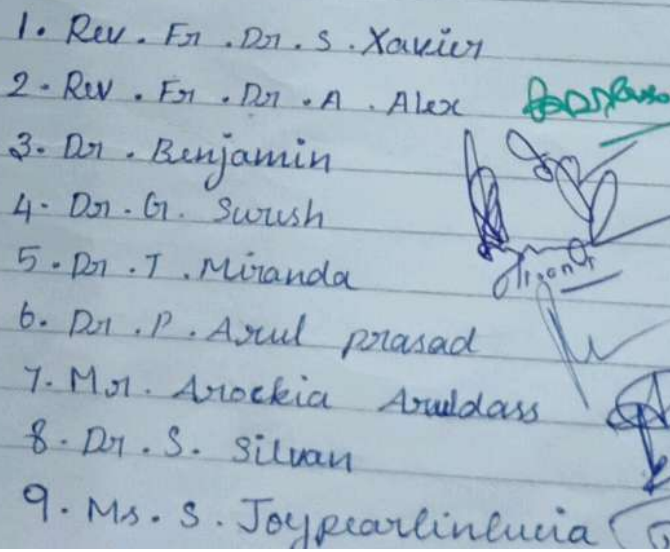 1. Rev. Fr. Dr. S. Xavier
2. Rev. Fr. Dr. A. Alex
3. Dr. Benjamin
4. Dr. G. Suresh
5. Dr. T. Miranda
6. Dr. P. Arul prasad
7. Mr. Arockia Aruldass
8. Dr. S. Silvan
9. Ms. S. Joypearlinlucia